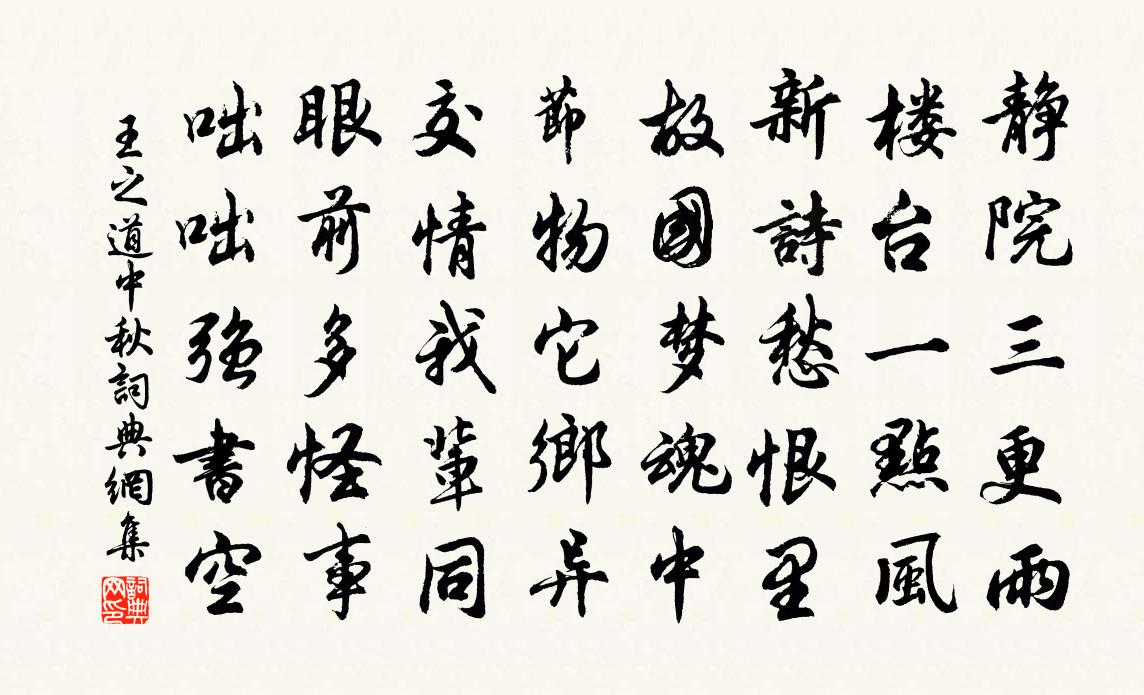 静院三更雨
楼台一點風
新詩愁恨里
故國梦魂中
節物它鄉异
交情我輩同
眼前多怪事
咄咄强書空
王之道中秋詞典網集
詞典网印